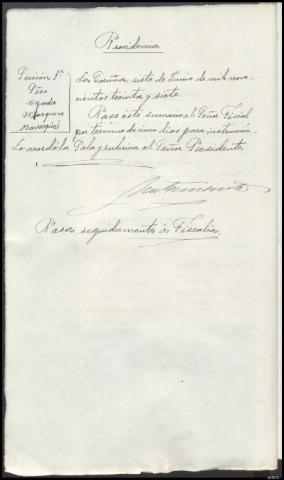 Providencia
Sección 1ª
Pres
Ojeda
Marquina
La Coruña, siete de Junio de mil nove-
cientos treinta y siete.
Pase este sumario al Señor Fiscal
por termino de cinco dias para instrucción.
Lo acordó la Sala y rubrica el Señor Presidente.
Pasa seguidamente á Fiscalia.